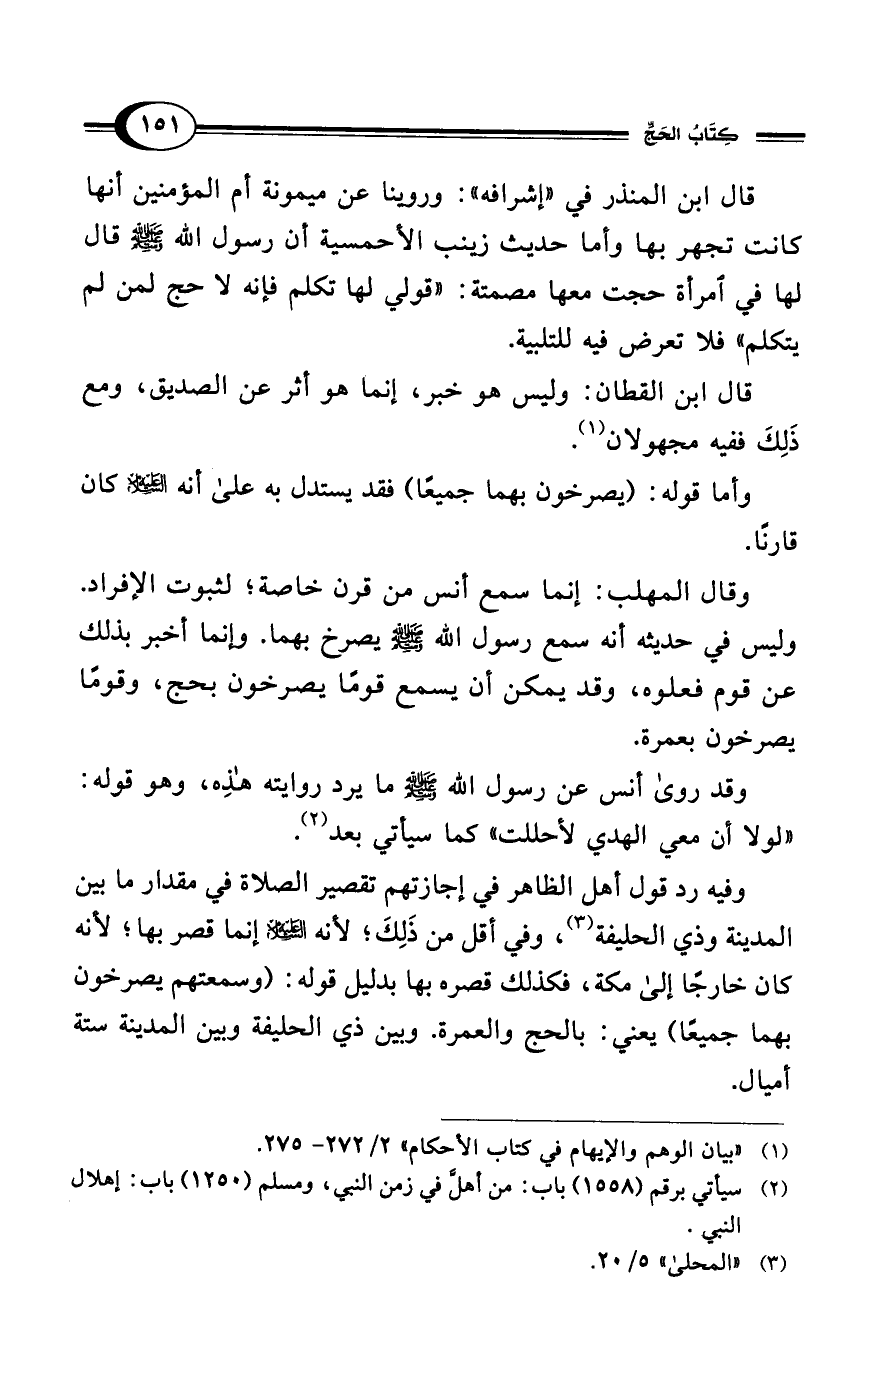 كِتَابُ الحَجِّ
١٥١
قال ابن المنذر في «إشرافه»: وروينا عن ميمونة أم المؤمنين أنها
كانت تجهر بها وأما حديث زينب الأحمسية أن رسول الله ﷺ قال
لها في ٱمرأة حجت معها مصمتة: «قولي لها تكلم فإنه لا حج لمن لم
يتكلم» فلا تعرض فيه للتلبية.
قال ابن القطان: وليس هو خبر، إنما هو أثر عن الصديق، ومع
ذَلِكَ ففيه مجهولان(١).
وأما قوله: (يصرخون بهما جميعًا) فقد يستدل به علىٰ أنه العَلَيْهِ السَّلَام كان
قارنًا.
وقال المهلب: إنما سمع أنس من قرن خاصة؛ لثبوت الإفراد.
وليس في حديثه أنه سمع رسول الله ﷺ يصرخ بهما. وإنما أخبر بذلك
عن قوم فعلوه، وقد يمكن أن يسمع قومًا يصرخون بحج، وقومًا
يصرخون بعمرة.
وقد روىٰ أنس عن رسول الله ﷺ ما يرد روايته هٰذِه، وهو قوله:
«لولا أن معي الهدي لأحللت» كما سيأتي بعد(٢).
وفيه رد قول أهل الظاهر في إجازتهم تقصير الصلاة في مقدار ما بين
المدينة وذي الحليفة(٣)، وفي أقل من ذَلِكَ؛ لأنه العَلَيْهِ السَّلَام إنما قصر بها؛ لأنه
كان خارجًا إلىٰ مكة، فكذلك قصره بها بدليل قوله: (وسمعتهم يصرخون
بهما جميعًا) يعني: بالحج والعمرة. وبين ذي الحليفة وبين المدينة ستة
أميال.
(١) «بيان الوهم والإيهام في كتاب الأحكام» ٢/ ٢٧٢- ٢٧٥.
(٢) سيأتي برقم (١٥٥٨) باب: من أهلَّ في زمن النبي، ومسلم (١٢٥٠) باب: إهلال
النبي .
(٣) «المحلىٰ» ٥/ ٢٠.